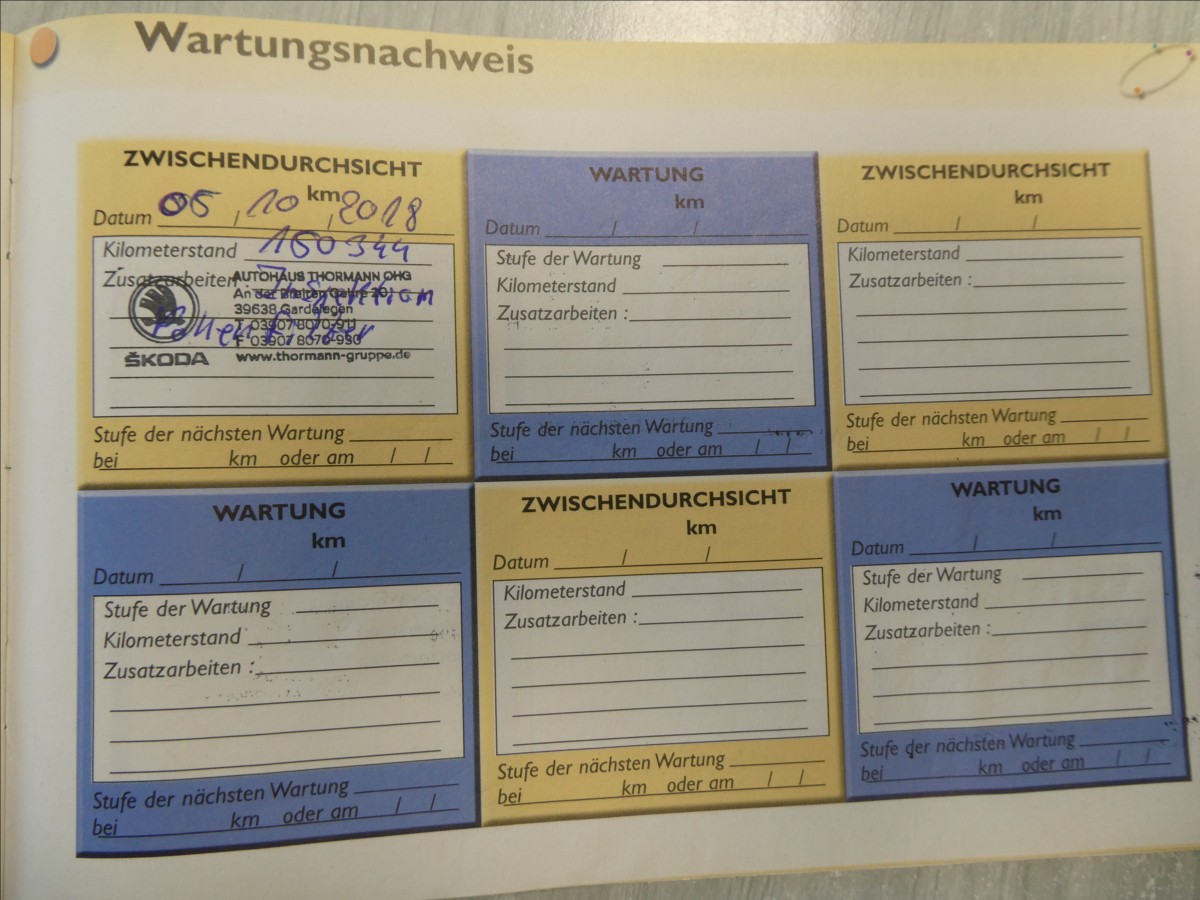 Wartungsnachweis
ZWISCHENDURCHSICHT
km
Datum 05 / 10 / 2018
Kilometerstand 160344
Zusatzarbeiten Inspektion
Pollenfilter
AUTOHAUS THORMANN OHG
An der Breiten Gehre 20
39638 Gardelegen
T 03907 8070-911
F 03907 8070-930
ŠKODA www.thormann-gruppe.de
Stufe der nächsten Wartung
bei km oder am / /
WARTUNG
km
Datum / /
Stufe der Wartung
Kilometerstand
Zusatzarbeiten :
Stufe der nächsten Wartung
bei km oder am / /
ZWISCHENDURCHSICHT
km
Datum / /
Kilometerstand
Zusatzarbeiten :
Stufe der nächsten Wartung
bei km oder am / /
WARTUNG
km
Datum / /
Stufe der Wartung
Kilometerstand
Zusatzarbeiten :
Stufe der nächsten Wartung
bei km oder am / /
ZWISCHENDURCHSICHT
km
Datum / /
Kilometerstand
Zusatzarbeiten :
Stufe der nächsten Wartung
bei km oder am / /
WARTUNG
km
Datum / /
Stufe der Wartung
Kilometerstand
Zusatzarbeiten :
Stufe der nächsten Wartung
bei km oder am / /